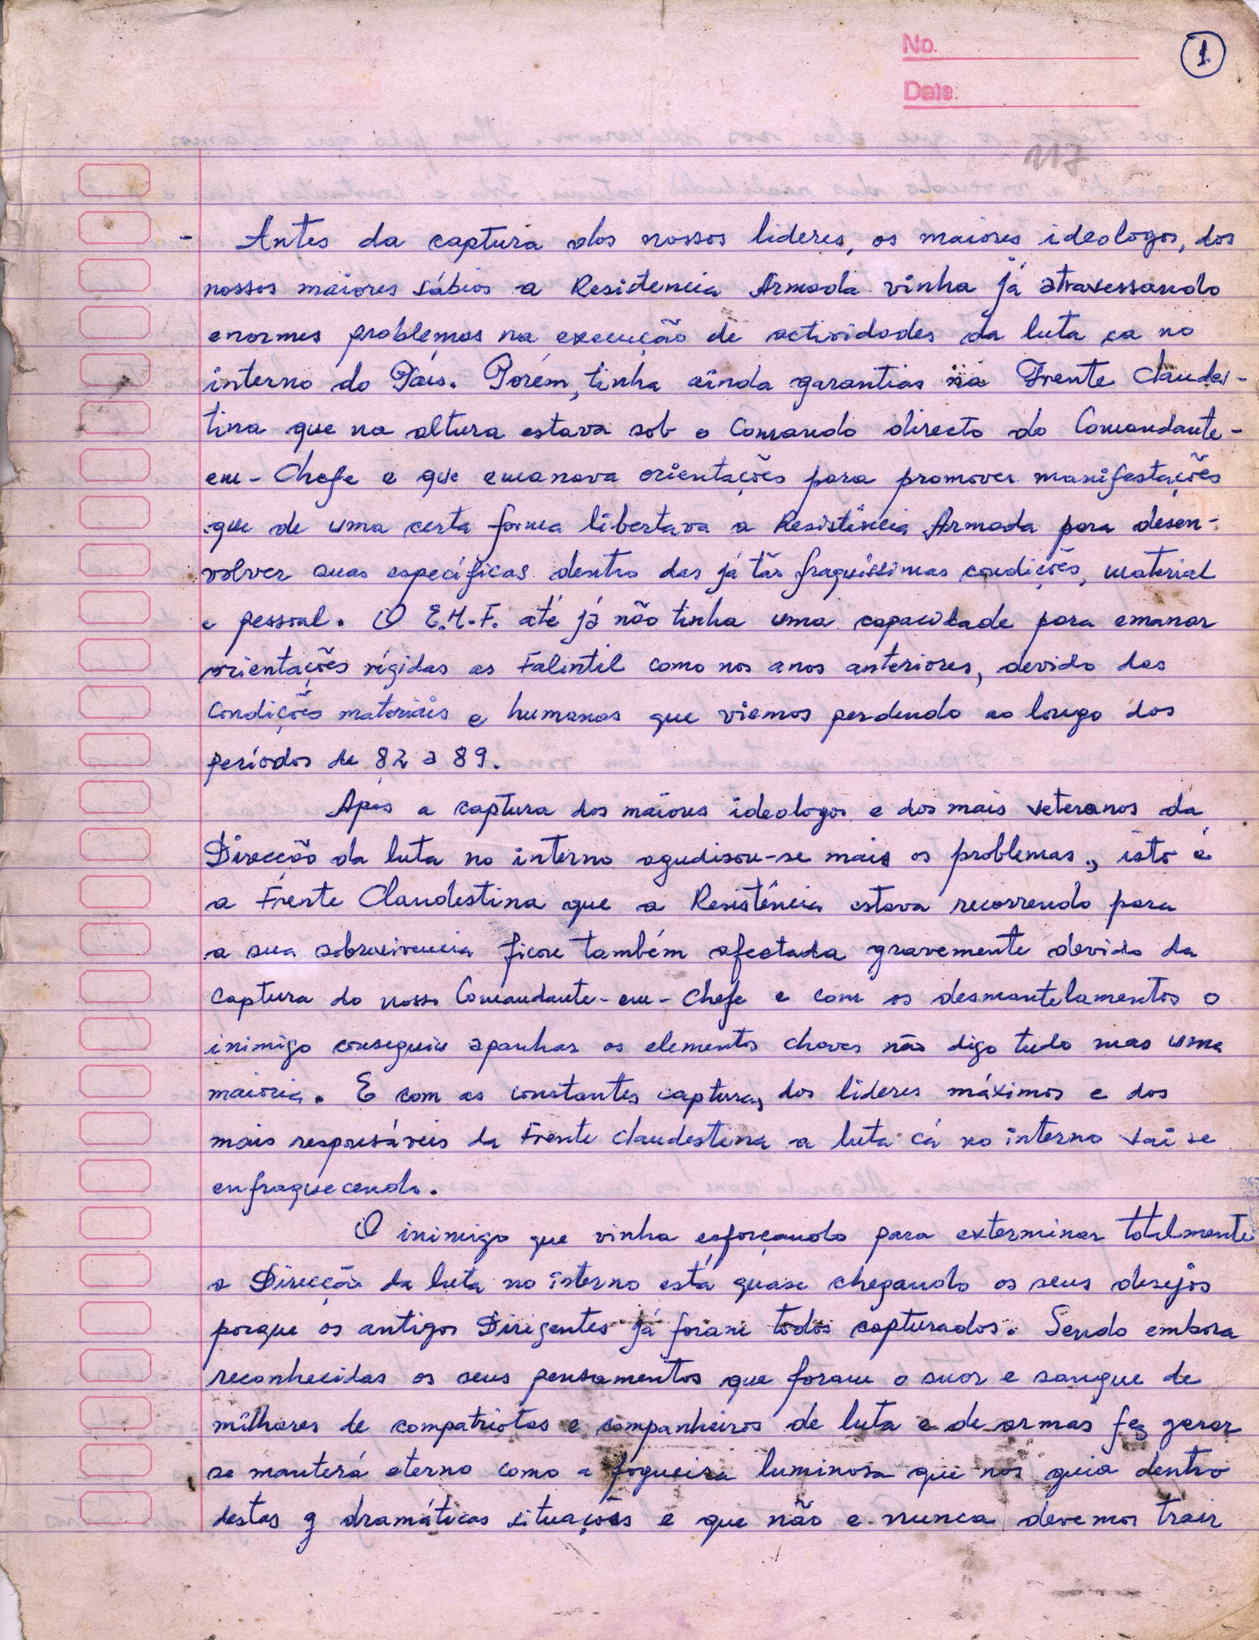 No.
1
Date.
117
- Antes da captura dos nossos lideres, os maiores ideologos, dos
nossos maiores sábios a Resistencia Armada vinha já atravessando
enormes problemas na execução de actividades da luta ca no
interno do País. Porém, tinha ainda garantias na Frente Clandes-
tina que na altura estava sob o Comando directo do Comandante-
em-Chefe e que emanava orientações para promover manifestações
que de uma certa forma libertava a Resistência Armada para desen-
volver suas específicas dentro das já tão fraquíssimas condições, material
e pessoal. O E.M.F. até já não tinha uma capacidade para emanar
orientações rígidas as Falintil como nos anos anteriores, devido das
condições materiais e humanas que viemos perdendo ao longo dos
períodos de 82 a 89.
Apos a captura dos maiores ideologos e dos mais veteranos da
Direcção da luta no interno agudisou-se mais os problemas, isto é
a Frente Clandestina que a Resistência estava recorrendo para
a sua sobrevivencia ficou também afectada gravemente devido da
captura do nosso Comandante-em-Chefe e com os desmantelamentos o
inimigo conseguiu apanhar os elementos chaves não digo tudo mas uma
maioria. E com as constantes capturas dos lideres máximos e dos
mais responsáveis da Frente Clandestina a luta cá no interno vai se
enfraquecendo.
O inimigo que vinha esforçando para exterminar totalmente
a Direcção da luta no interno está quase chegando os seus desejos
porque os antigos Dirigentes já foram todos capturados. Sendo embora
reconhecidas os seus pensamentos que foram o suor e sangue de
milhares de compatriotas e companheiros de luta e de armas fez gerar
se manterá eterno como a fogueira luminosa que nos guia dentro
destas g dramáticas situações e que não e nunca devemos trair